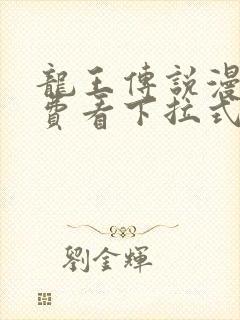 龍王傳說漫
費看下拉式
劉金輝